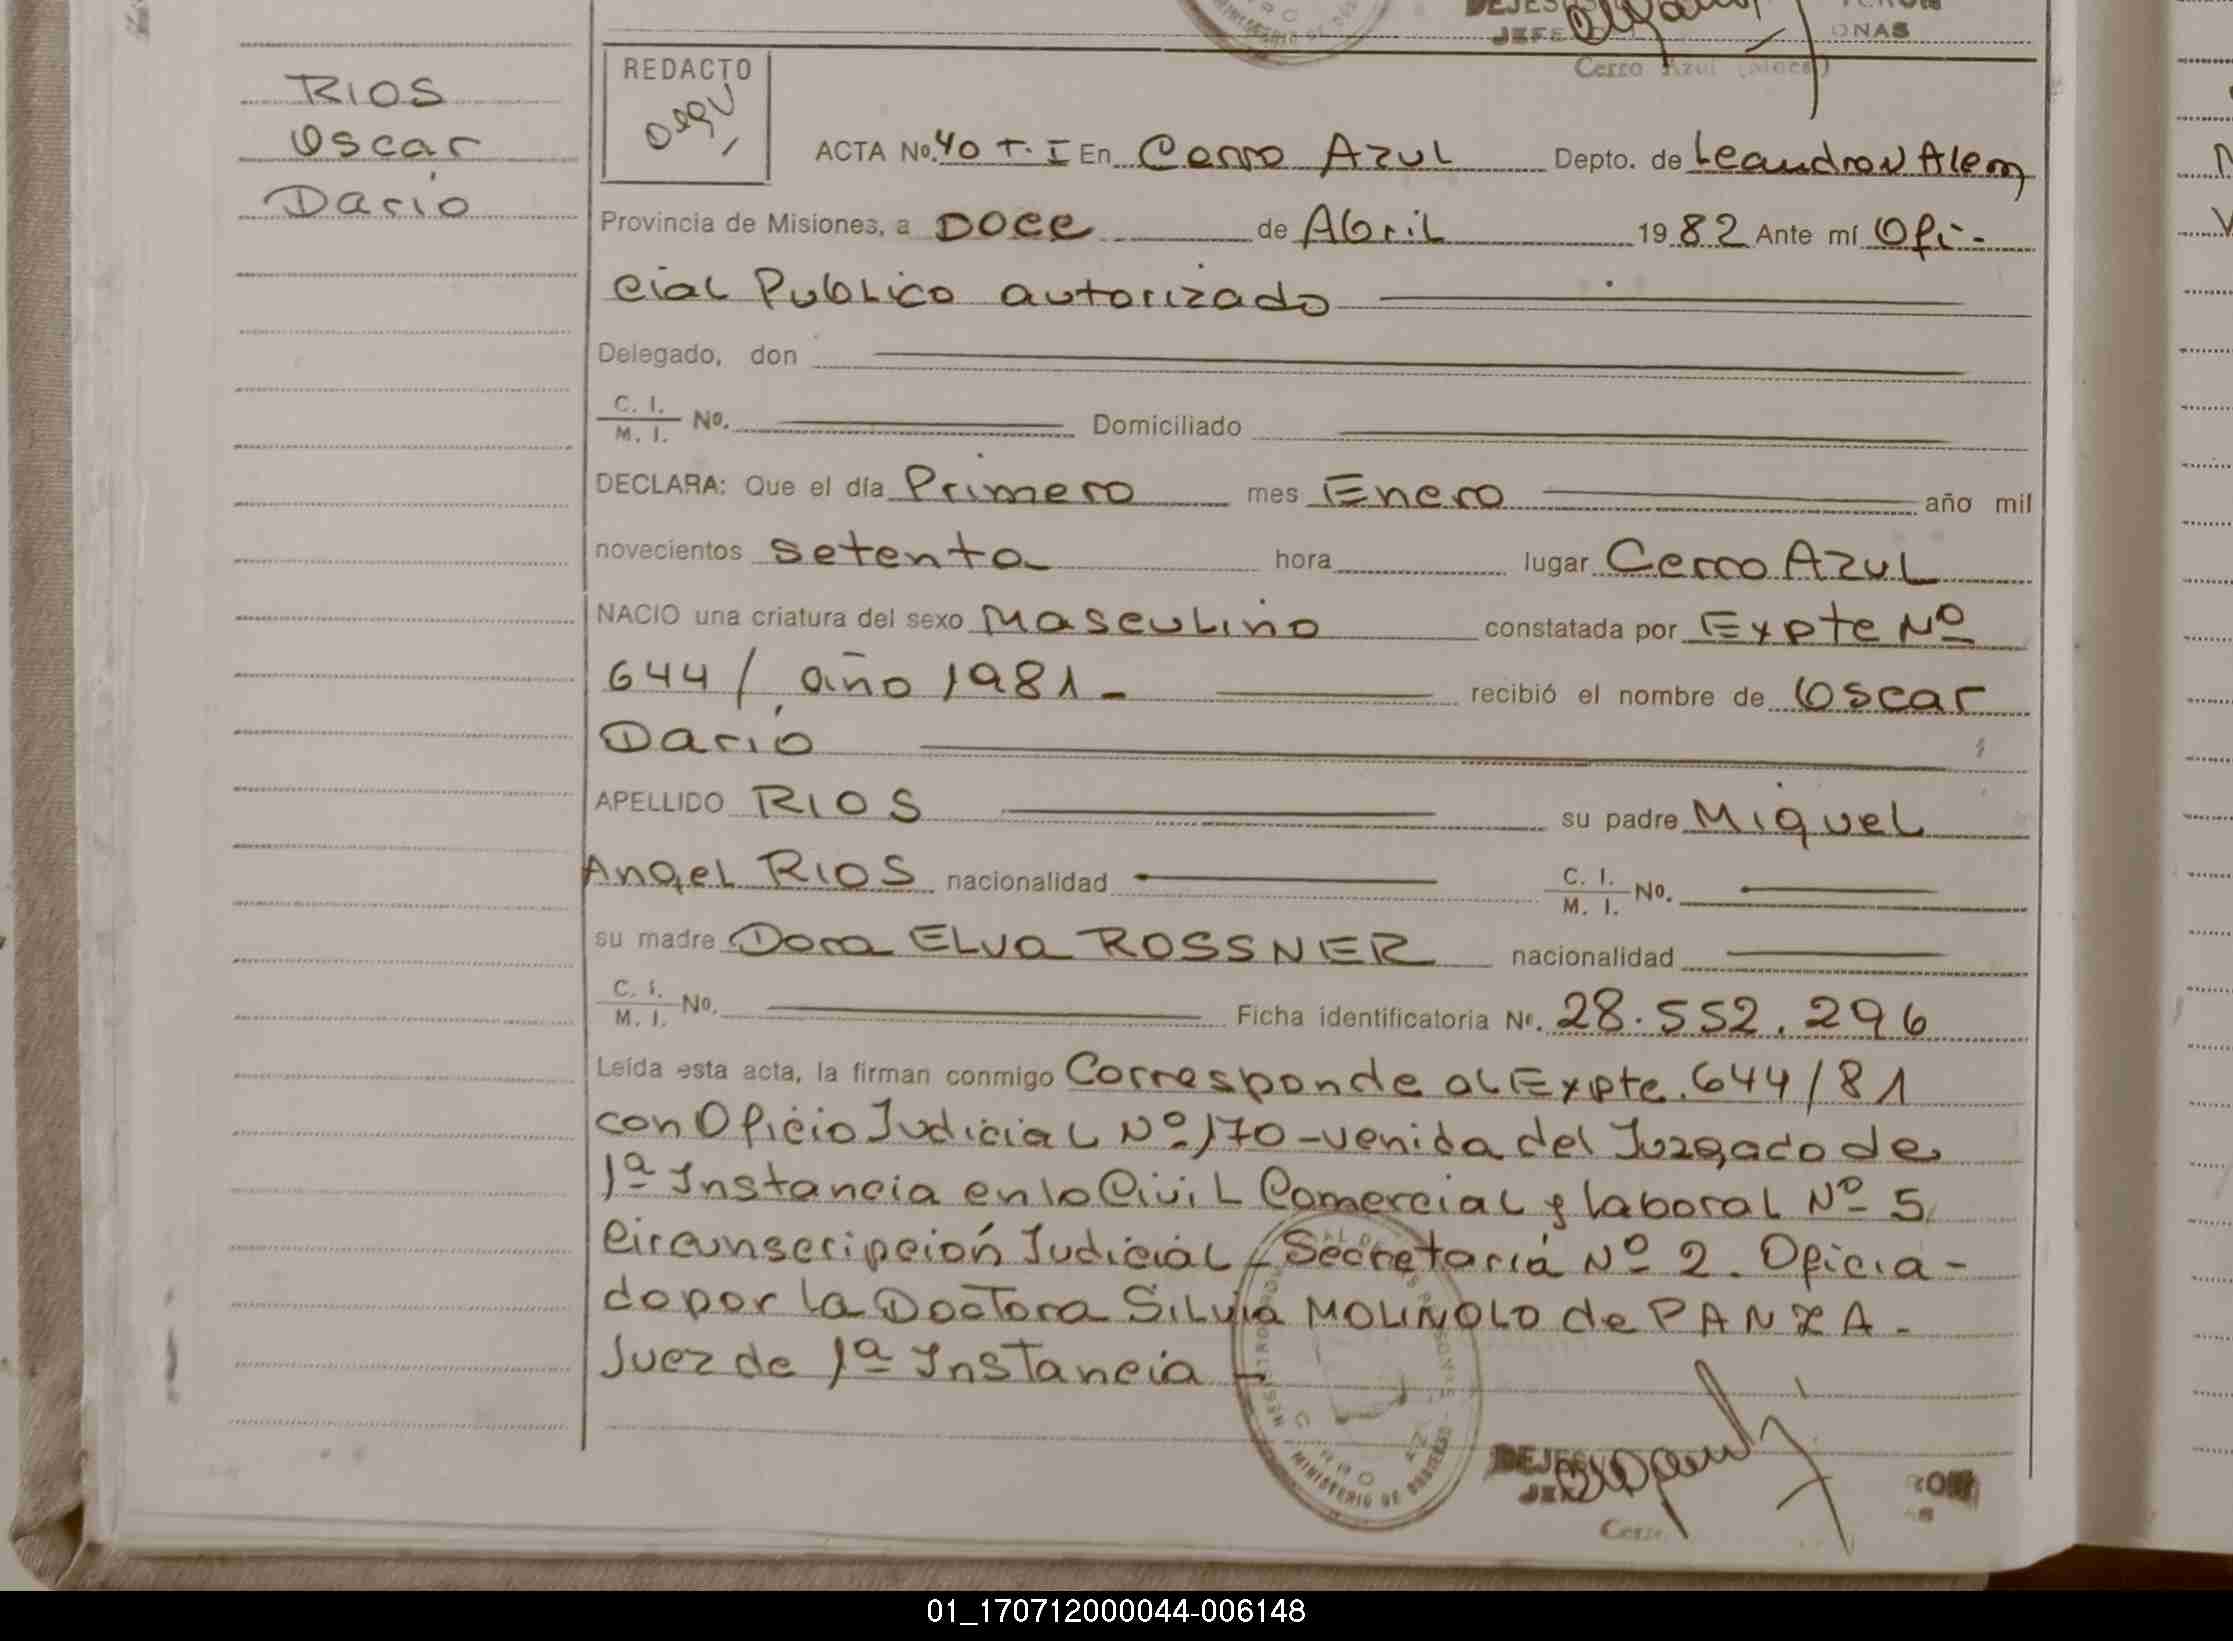 DEJES
JEFE ONAS
Cerro Azul (Mnes)
RIOS
Oscar
Dario
REDACTO
ACTA No. 40 T. I En Cerro Azul Depto. de Leandro N Alem
Provincia de Misiones, a DOCE de Abril 1982 Ante mí Ofi-
cial Publico autorizado
Delegado, don
C. I.
M. I. No. Domiciliado
DECLARA: Que el día Primero mes Enero año mil
novecientos setenta hora lugar Cerro Azul
NACIO una criatura del sexo Masculino constatada por Expte Nº
644/ año 1981- recibió el nombre de Oscar
Dario
APELLIDO RIOS su padre Miguel
Angel RIOS nacionalidad C. I.
M. I. No.
su madre Dora ELVA ROSSNER nacionalidad
C. I.
M. I. No. Ficha identificatoria Nº. 28.552.296
Leída esta acta, la firman conmigo Corresponde al Expte. 644/81
con Oficio Judicial Nº 170-venida del Juzgado de
1ª Instancia en lo Civil Comercial y laboral Nº 5
Circunscripción Judicial - Secretaría Nº 2. Oficia-
do por la Doctora Silvia MOLINOLO de PANZA.
Juez de 1ª Instancia -
MINISTERIO DE GOBIERNO
DEJES
01_170712000044-006148